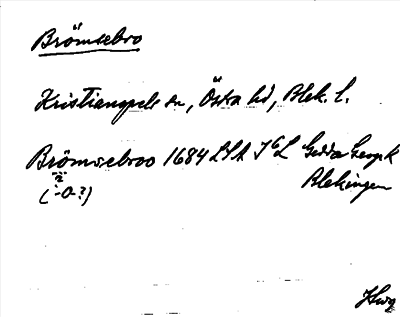 Brömsebro
Kristianopels sn, Östra hd, Blek. l.
Brömsebroo 1684 LSA Gedda Geogr. k
(-o?) Blekingen